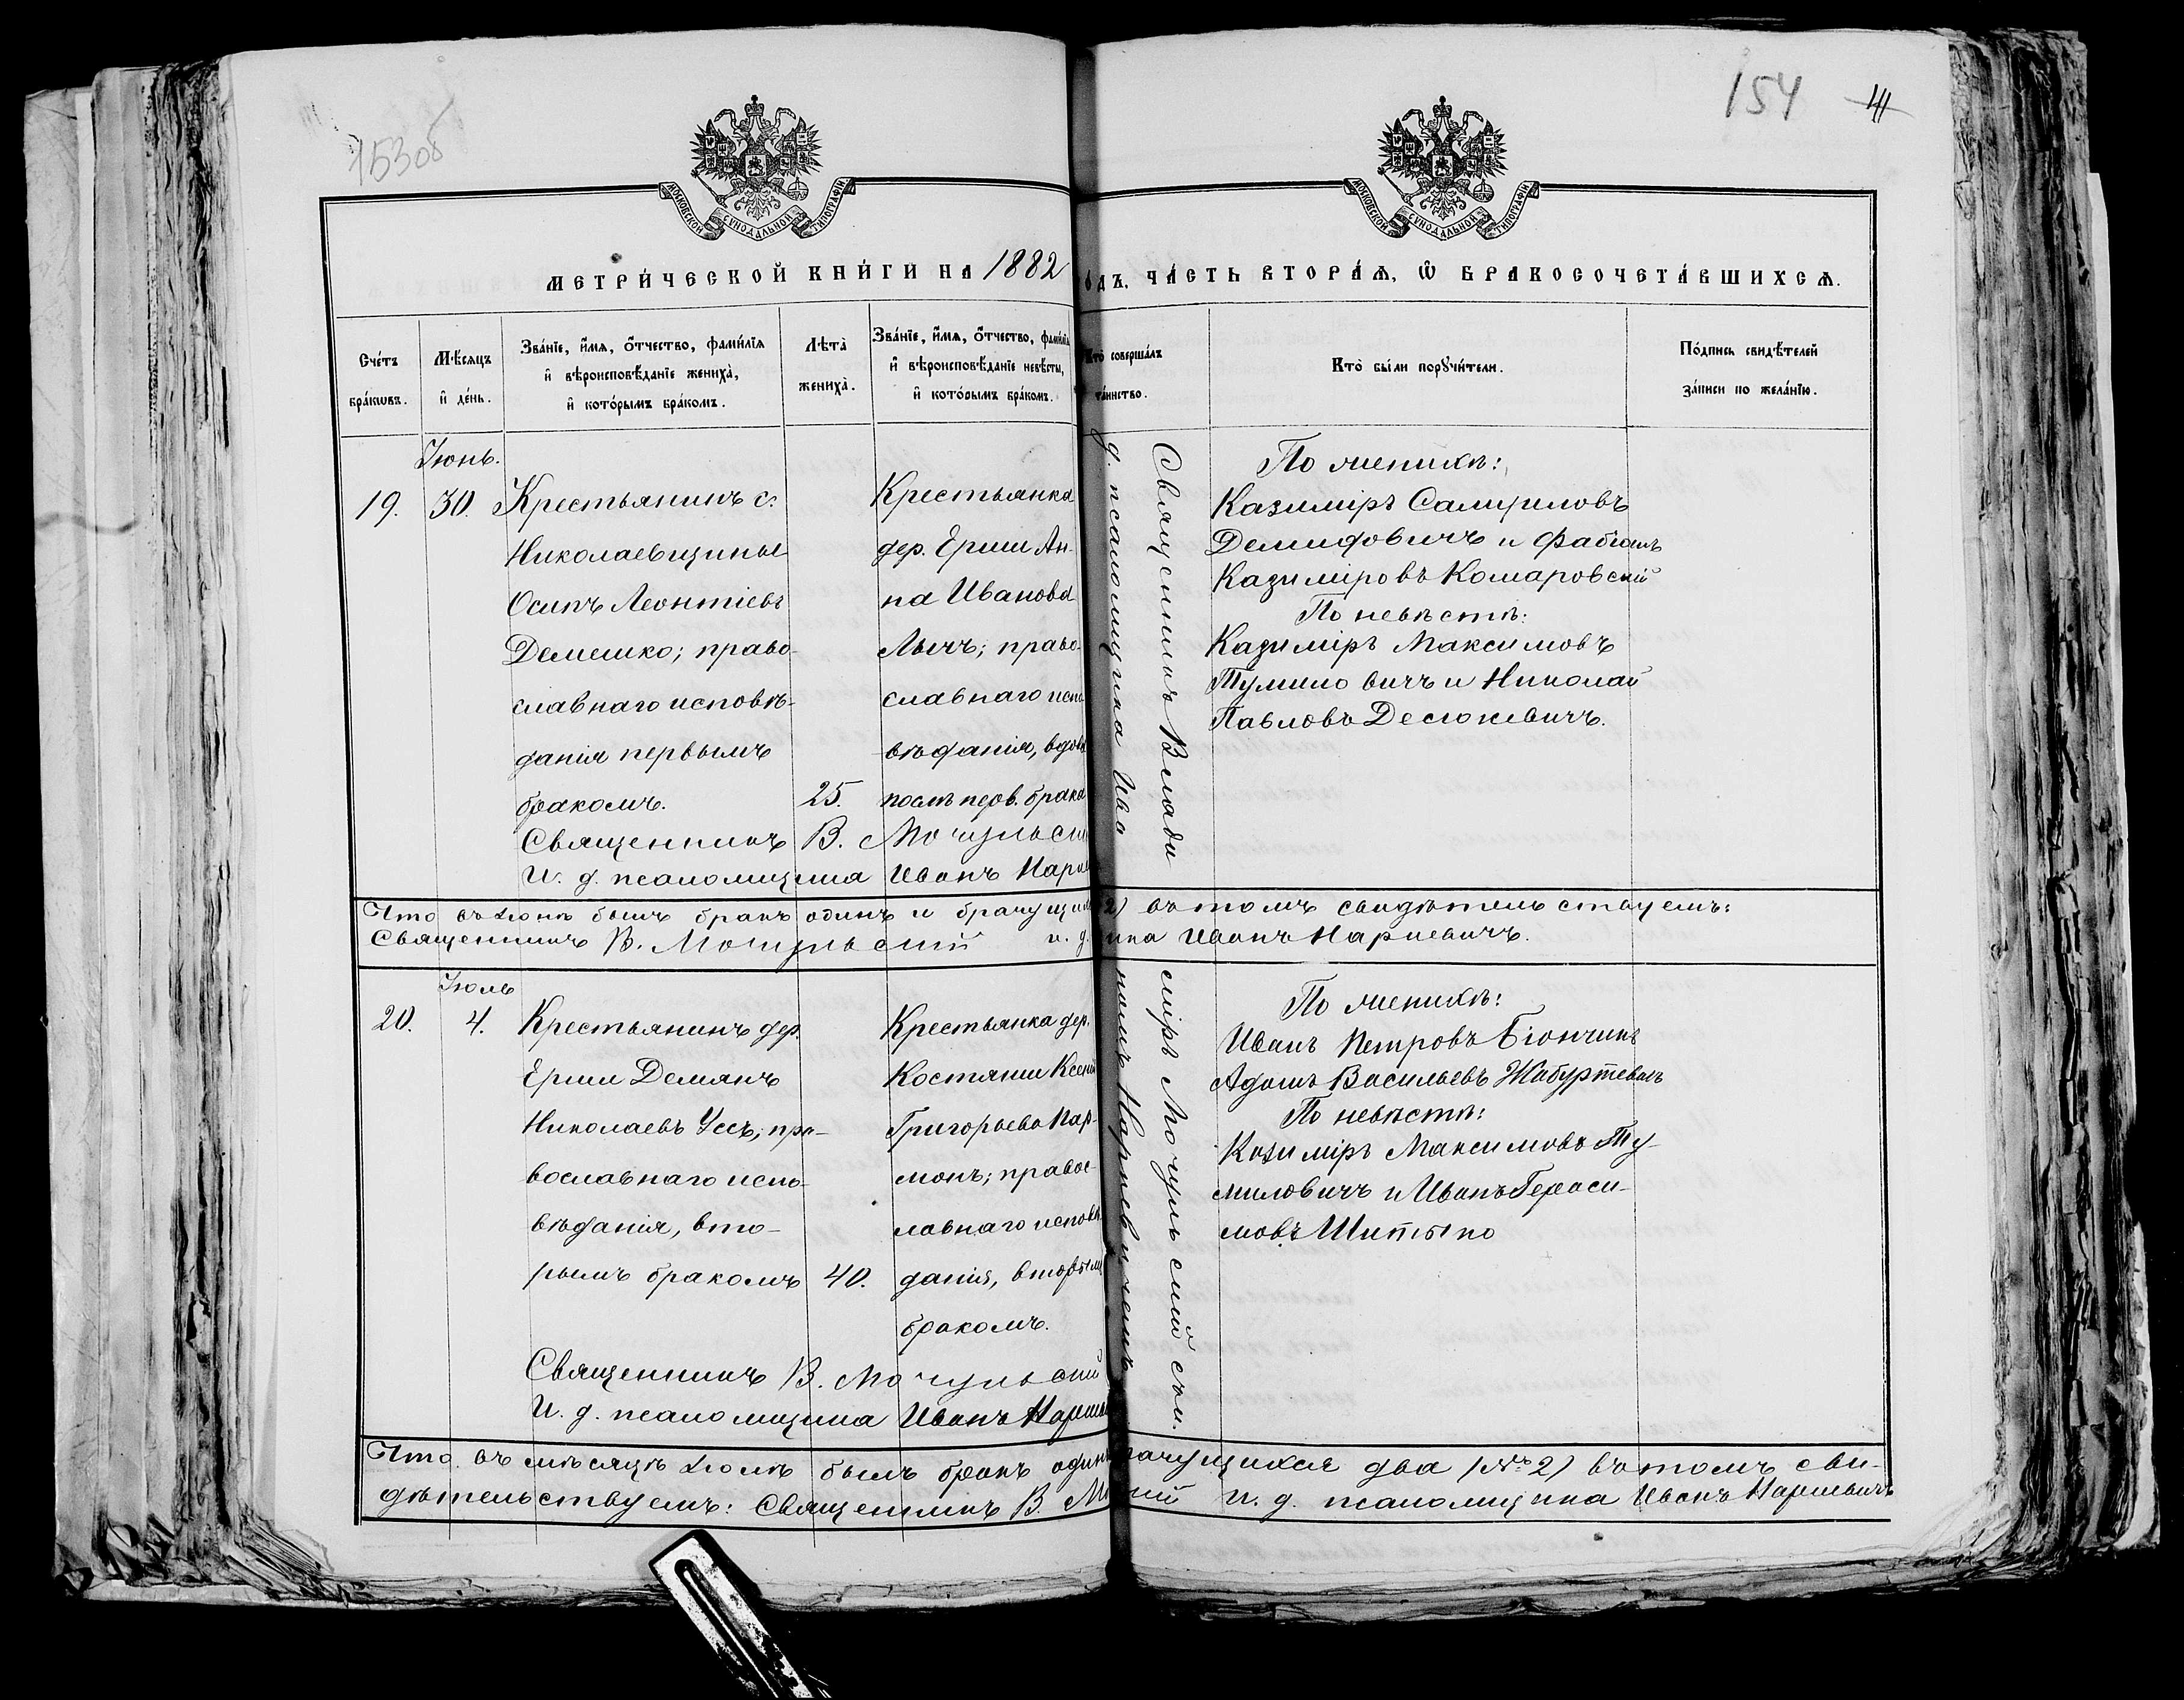 153об
154
41
МОСКОВСКОЙ СУНОДАЛЬНОЙ ТИПОГРАФІИ
МОСКОВСКОЙ СУНОДАЛЬНОЙ ТИПОГРАФІИ
МЕТРИ́ЧЕСКОЙ КНИ́ГИ НА 1882
о́дъ, ЧА́СТЬ ВТОРА́Ѧ, Ѿ БРАКОСОЧЕТА́ВШИХСѦ.
Сче́тъ бра́кѡвъ.
Мѣ́сѧцъ и҆ де́нь.
Зва́нїе, и҆́мѧ, ѻ҆́тчество, фами́лїѧ
и҆ вѣроисповѣ́данїе жениха̀,
и҆ кото́рымъ бра́комъ.
Лѣта̀ жениха̀.
Зва́нїе, и҆́мѧ, ѻ҆́тчество, фами́лїѧ
и҆ вѣроисповѣ́данїе невѣ́сты,
и҆ кото́рымъ бра́комъ.
Кто̀ соверша́лъ
та́инство.
Кто̀ бы́ли порꙋчи́тели.
По́дпись свидѣ́телей
за́писи по жела́нїю.
Іюнь.
19. 30.
Крестьянинъ с.
Николаевщины
Осипъ Леонтіевъ
Демешко; право-
славнаго исповѣ-
данія первымъ
бракомъ.
25.
Крестьянка
дер. Ерши Ан-
на Иванова
Лычъ; право-
славнаго испо
вѣданія, вдова
послѣ перв. брака
Священникъ В. Мочульскі
И. д. псаломщика Иванъ Нарке
Священникъ Влади
д. псаломщика Ива
По женихѣ:
Казиміръ
Демидовичъ и Фабіанъ
Казиміровъ Комаровскій
По невѣстѣ:
Казиміръ Максимовъ
Тумиловичъ и Николай
Павловъ Десюкевичъ.
Что въ Іюнѣ былъ бракъ одинъ и брачущих 2) въ томъ свидѣтельствуемъ:
Священникъ В. Мочульскій и. д. ика Иванъ Наркевичъ.
Іюль
20. 4.
Крестьянинъ дер.
Ерши Демянъ
Николаевъ Уссъ, пра-
вославнаго испо-
вѣданія, вто-
рымъ бракомъ
40.
Крестьянка дер.
Костяши Ксенія
Григорьева Пар-
монъ; правос-
лавнаго исповѣ
данія, вторымъ
бракомъ.
Священникъ В. Мочульскій
И. д. псаломщика Иванъ Наркев
міръ Мочульскій съ и.
номъ Наркевичемъ
По женихѣ:
Иванъ Петровъ Біончикъ
Адамъ Васильевъ
По невѣстѣ:
Казиміръ Максимовъ Ту-
миловичъ и Иванъ Гераси-
мовъ Шипыло
Что въ мѣсяцѣ Іюлѣ былъ бракъ одинъ рачущихся два (№ 2) въ томъ сви-
дѣтельствуемъ: Священникъ В. М кій и. д. псаломщика Иванъ Наркевичъ